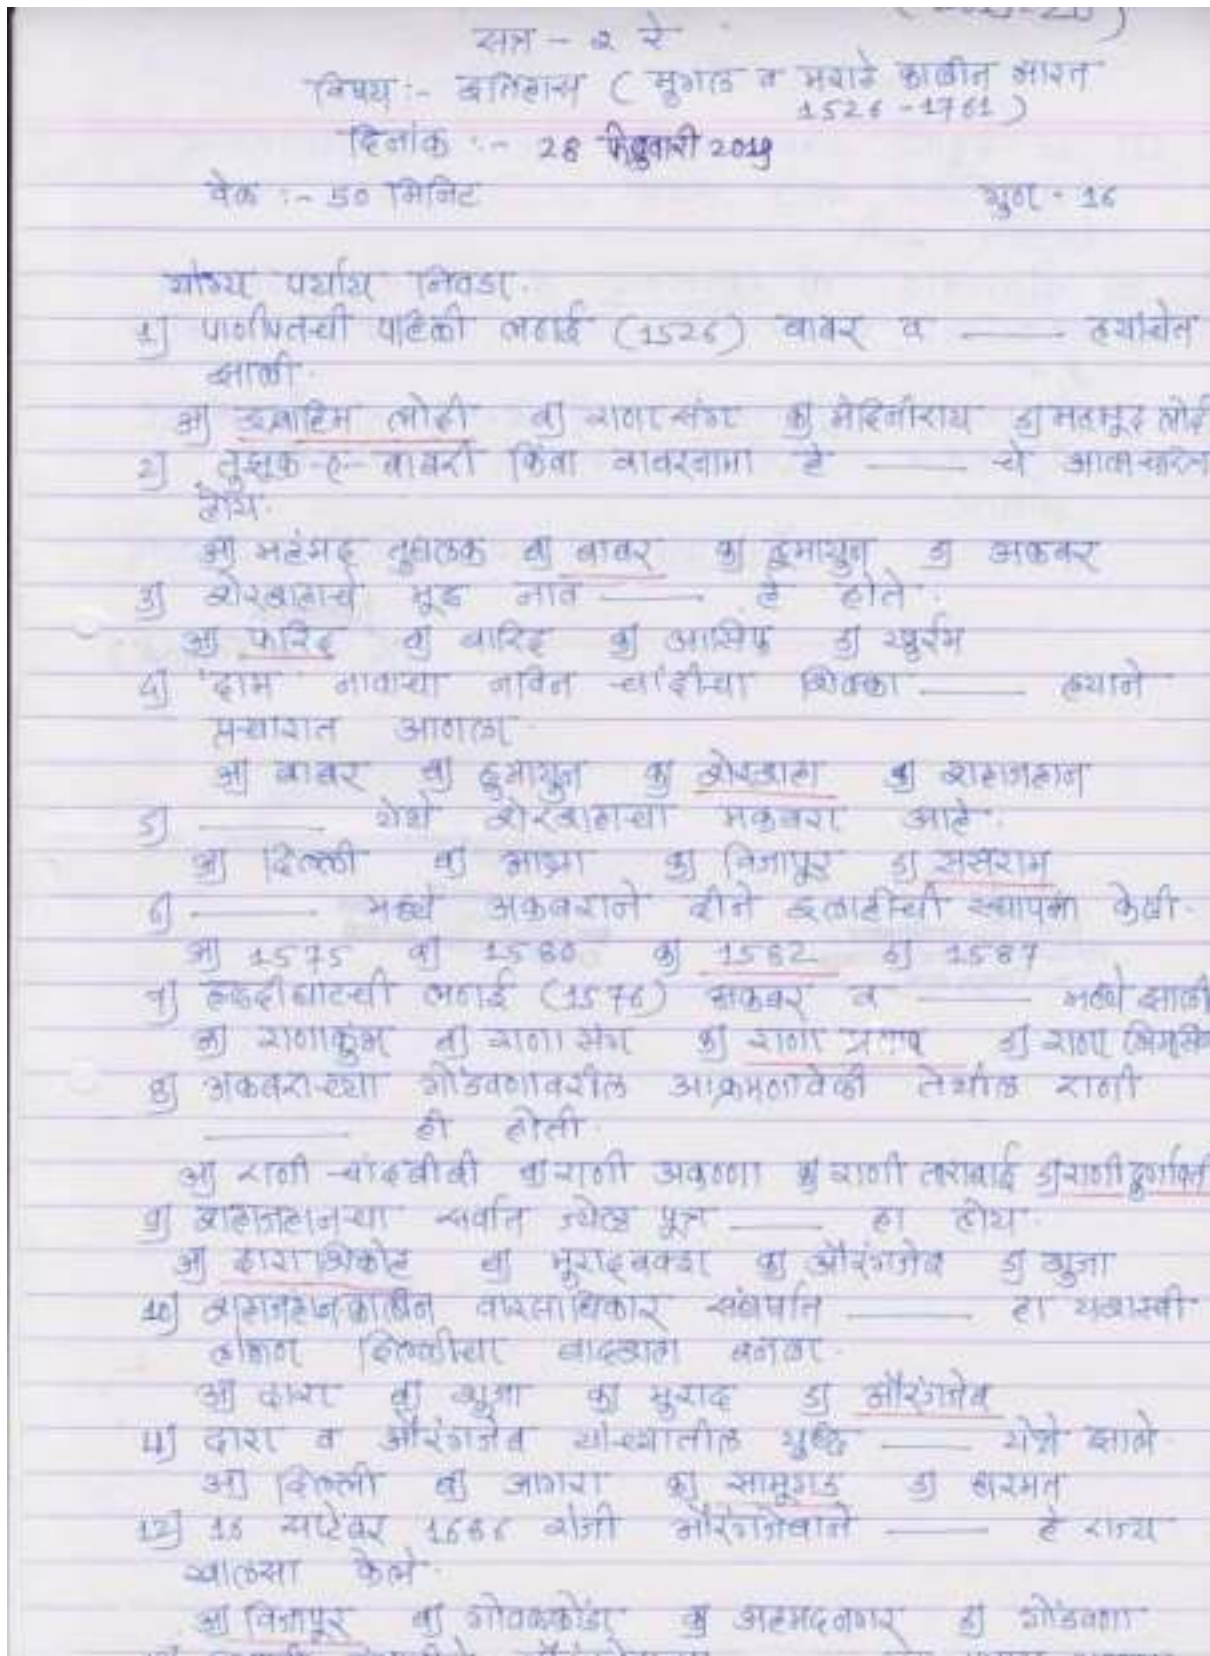 सत्र - २ रे
विषय :- इतिहास ( मुगल व मराठे कालीन भारत
1526 - 1761 )
दिनांक :- 28 फेब्रुवारी 2019
वेळ :- 50 मिनिट गुण - 16
योग्य पर्याय निवडा.
1) पाणीपतची पहिली लढाई (1526) बाबर व ——— ह्यांचेत
झाली.
अ) इब्राहिम लोदी ब) राणा संग क) मेदिनीराय ड) महमूद लोदी
2) तुझूक-ए-बाबरी किंवा बाबरनामा हे ——— चे आत्मचरित्र
होय.
अ) महंमद तुघलक ब) बाबर क) हुमायुन ड) अकबर
3) शेरशहाचे मूळ नाव ——— हे होते.
अ) फरिद ब) वारिद क) आसिफ ड) खुर्रम
4) 'दाम' नावाचा नविन चांदीचा शिक्का ——— ह्याने
प्रचारात आणला.
अ) बाबर ब) हुमायुन क) शेरशहा ड) शहाजहान
5) ——— येथे शेरशहाचा मकबरा आहे.
अ) दिल्ली ब) आग्रा क) विजापूर ड) ससराम
6) ——— मध्ये अकबराने दीने इलाहीची स्थापना केली.
अ) 1575 ब) 1580 क) 1582 ड) 1587
7) हळदीघाटची लढाई (1576) अकबर व ——— मध्ये झाली
अ) राणाकुंभ ब) राणा संग क) राणा प्रताप ड) राणा
8) अकबराच्या गोंडवणावरील आक्रमणावेळी तेथील राणी
——— ही होती.
अ) राणी चांदबीबी ब) राणी अकण्णा क) राणी ताराबाई ड) राणी दुर्गावती
9) शहाजहानच्या सर्वात ज्येष्ठ पूत्र ——— हा होय.
अ) दारा शिकोह ब) मूरादबक्श क) औरंगजेब ड) शुजा
10) शहाजहानकालीन वारसाधिकार संघर्षात ——— हा यशस्वी
होऊन दिल्लीचा बादशहा बनला.
अ) दारा ब) शुजा क) मुराद ड) औरंगजेब
11) दारा व औरंगजेब यांच्यातील युध्द ——— येथे झाले.
अ) दिल्ली ब) आगरा क) सामूगड ड) धरमत
12) 15 सप्टेंबर 1686 रोजी औरंगजेबाने ——— हे राज्य
खालसा केले.
अ) विजापूर ब) गोवळकोंडा क) अहमदनगर ड) गोंडवणा